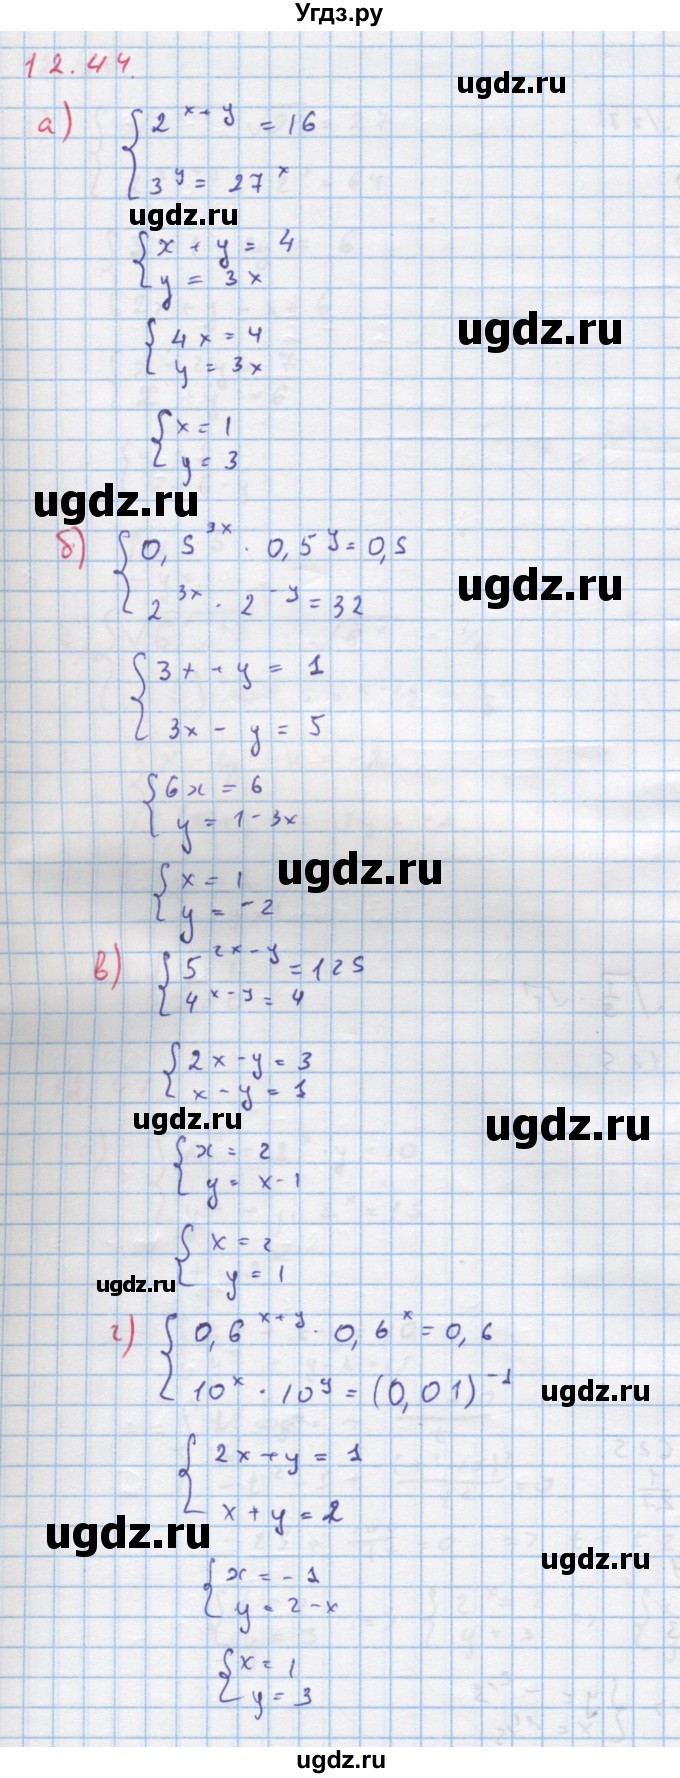 Угдз.ру
12.44.
ugdz.ru
а) { 2^{x+y} = 16
3^y = 27^x
ugdz.ru
{ x + y = 4
y = 3x
ugdz.ru
{ 4x = 4
y = 3x
{ x = 1
y = 3
ugdz.ru
б) { 0,5^{3x} · 0,5^y = 0,5
ugdz.ru
2^{3x} · 2^{-y} = 32
{ 3x + y = 1
3x - y = 5
{ 6x = 6
y = 1 - 3x
ugdz.ru
{ x = 1
y = -2
в) { 5^{2x-y} = 125
4^{x-y} = 4
{ 2x - y = 3
x - y = 1
ugdz.ru
ugdz.ru
{ x = 2
y = x - 1
{ x = 2
y = 1
ugdz.ru
г) { 0,6^{x+y} · 0,6^x = 0,6
10^x · 10^y = (0,01)^{-1}
ugdz.ru
{ 2x + y = 1
x + y = 2
ugdz.ru
ugdz.ru
{ x = -1
y = 2 - x
{ x = 1
y = 3
ugdz.ru